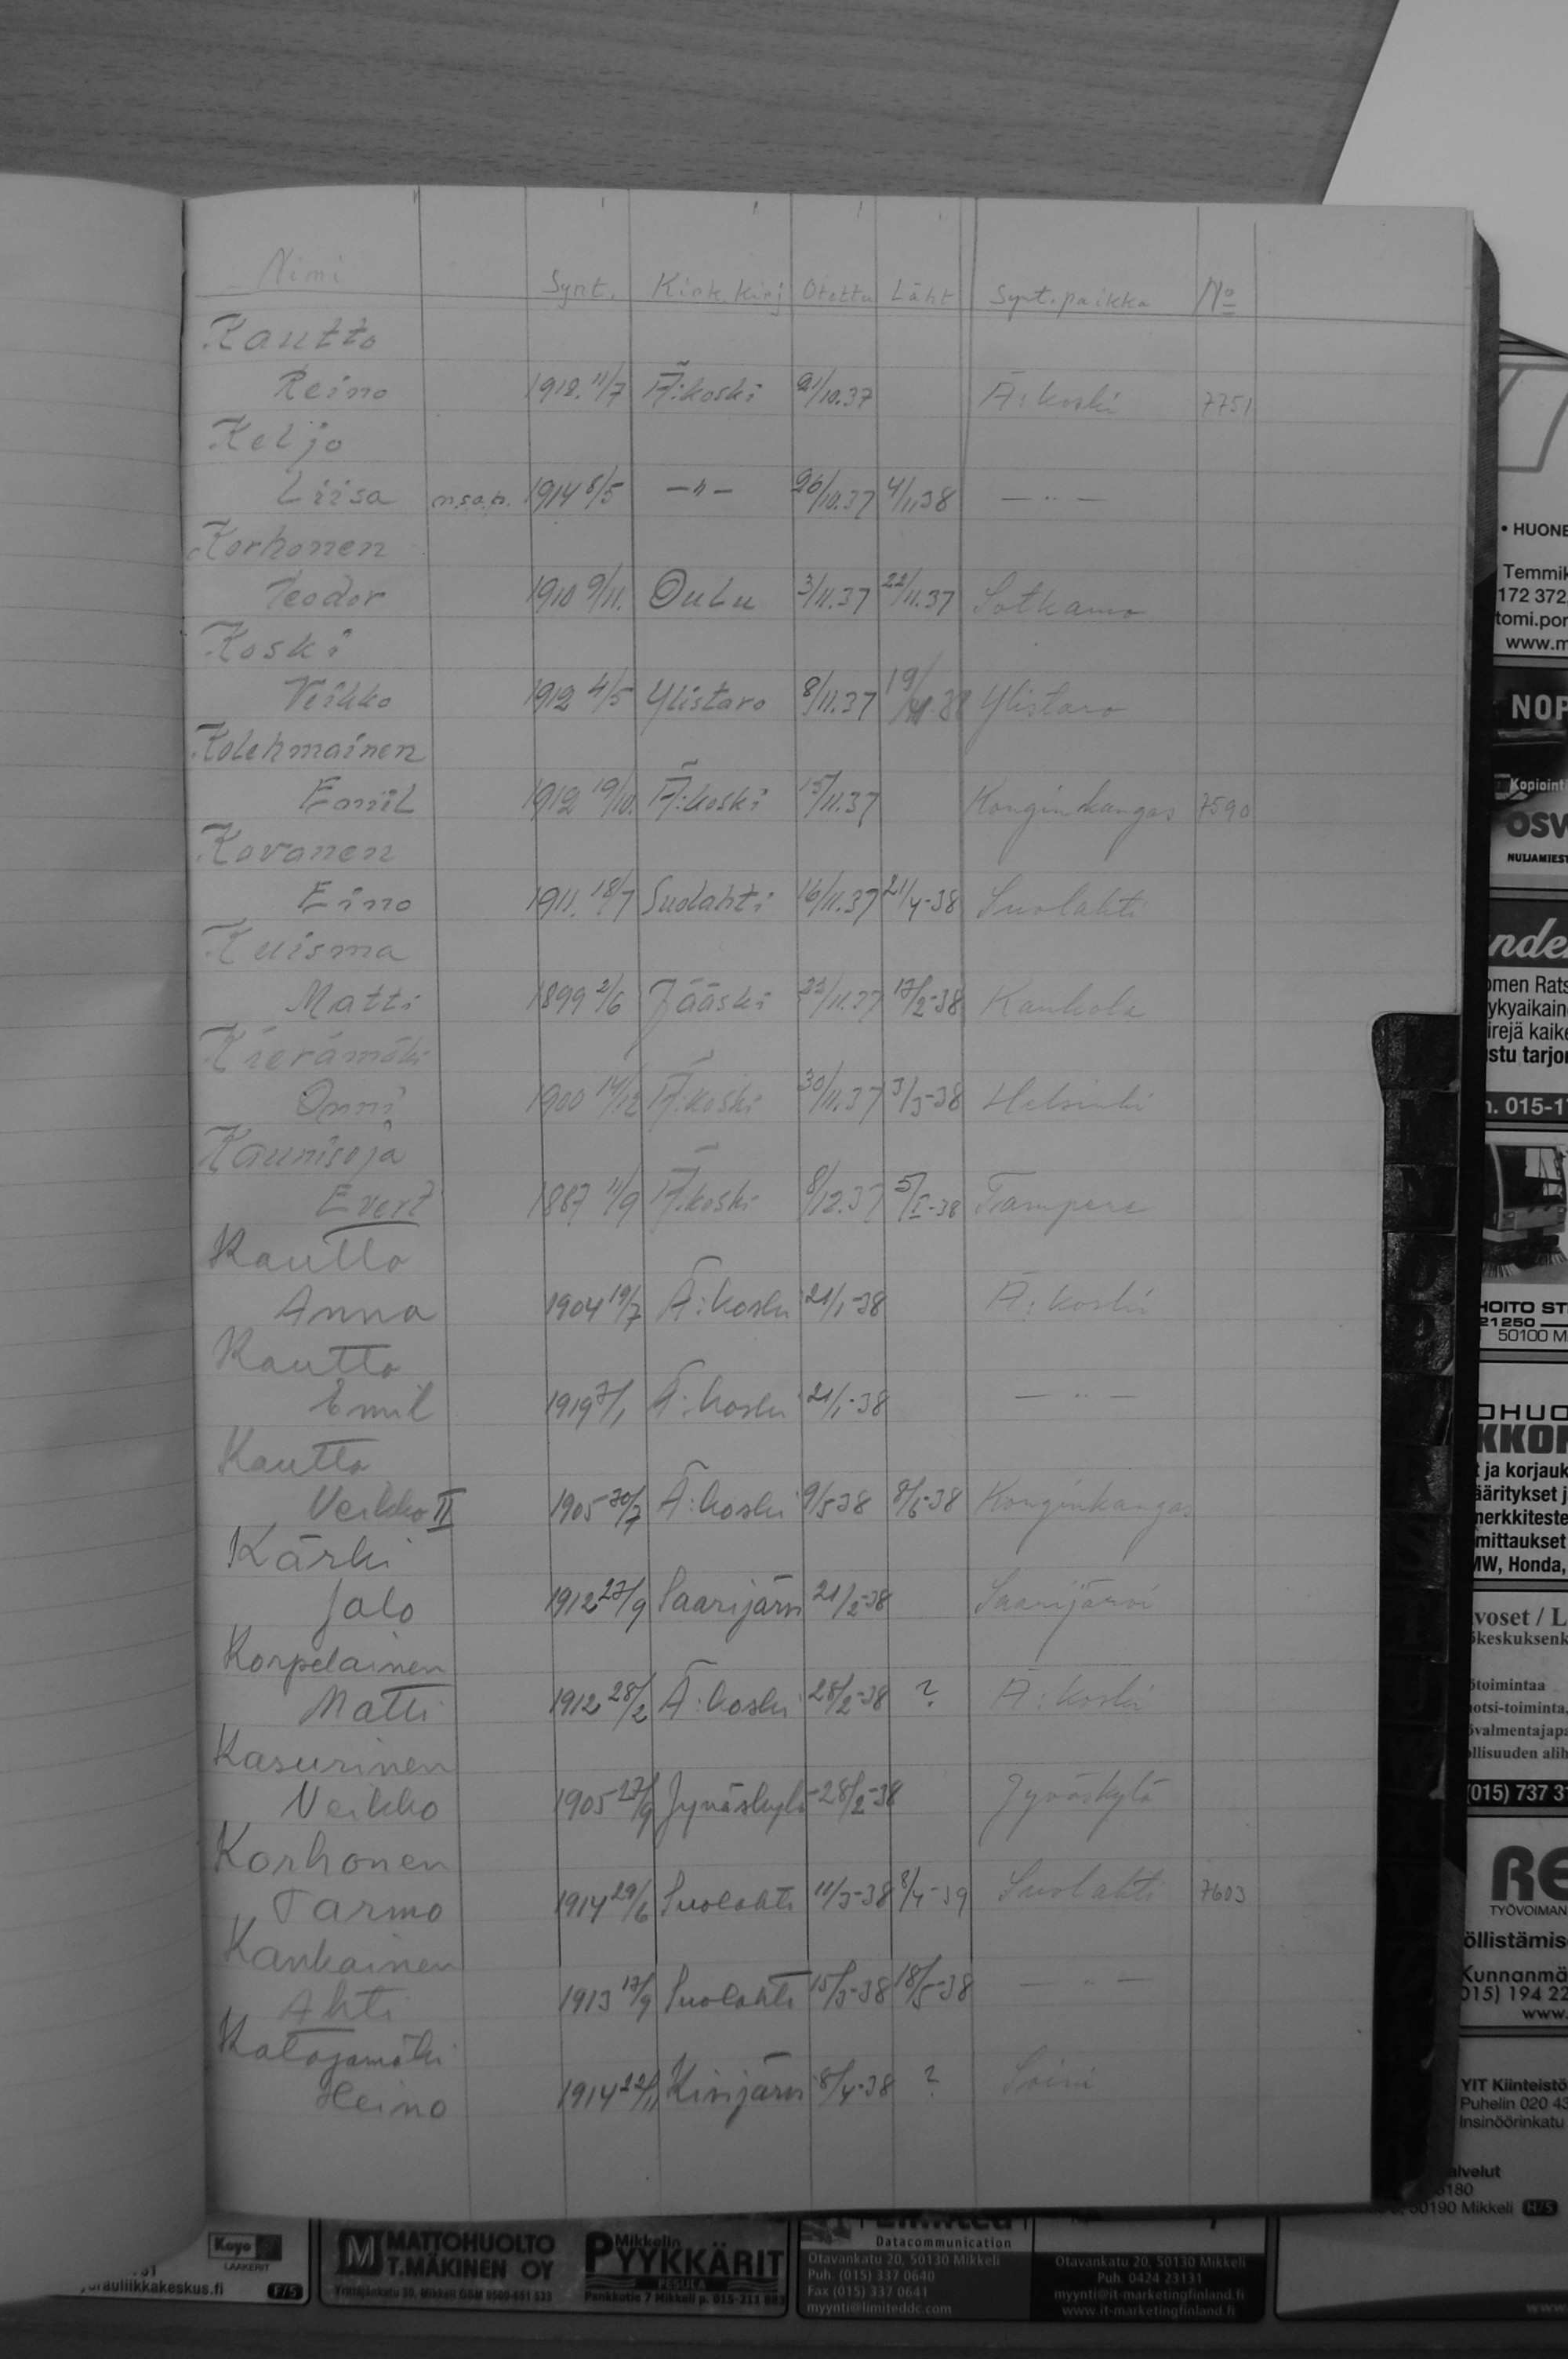 Nimi Synt. Kirk.kirj Otettu Läht Synt.paikka No
Kautto
Reino 1912. 11/7 Ä:koski 21/10.37 Ä:koski 7751
Keljo
Liisa m.s.o.p. 1914 8/5 -"- 26/10.37 4/1.38 - " -
Korhonen
Teodor 1910 9/11. Oulu 3/11.37 22/11.37 Sotkamo
Koski
Veikko 1912 4/5 Ylistaro 8/11.37 19/ .38 Ylistaro
Kolehmainen
Eemil 1912 19/10. Ä:koski 15/11.37 Konginkangas 7590
Kovanen
Eino 1911. 18/7 Suolahti 16/11.37 21/4-38 Suolahti
Kuisma
Matti 1899 2/6 Jääski 23/11.37 17/2-38 Kaukola
Kierämäki
Onni 1900 14/12 Ä:koski 30/11.37 3/3-38 Helsinki
Kaunisoja
Evert 1887 11/9 Ä:koski 8/12.37 5/I-38 Tampere
Kautto
Anna 1904 19/7 Ä:koski 21/1-38 Ä:koski
Kautto
Emil 1919 7/1 Ä:koski 21/1-38 - " -
Kautto
Veikko II 1905 30/7 Ä:koski 9/5-38 8/6-38 Konginkangas
Kärki
Jalo 1912 27/9 Saarijärvi 21/2-38 Saarijärvi
Korpelainen
Matti 1912 28/2 Ä:koski 28/2-38 ? Ä:koski
Kasurinen
Veikko 1905 27/9 Jyväskylä 28/2-38 Jyväskylä
Korhonen
Tarmo 1914 29/6 Suolahti 11/3-38 8/4-39 Suolahti 7603
Kankainen
Ahti 1913 17/9 Suolahti 15/3-38 18/5-38 - " -
Katajamäki
Heino 1914 22/11 Kivijärvi 8/4-38 ? Soini
• HUONE
Temmik
172 372
tomi.por
www.m
NOP
Kopiointi
OSV
NUIJAMIEST
nde
omen Rats
ykyaikain
irejä kaike
stu tarjo
n. 015-1
HOITO ST
21250
50100 M
OHUO
KKO
t ja korjauk
ääritykset j
merkkiteste
mittaukset
MW, Honda,
voset / L
ökeskuksenk
ötoimintaa
uotsi-toiminta,
övalmentajapa
ollisuuden alih
(015) 737 3
RE
TYÖVOIMAN
öllistämis
Kunnanmä
015) 194 22
www.
YIT Kiinteistö
Puhelin 020 43
Insinöörinkatu
alvelut
5180
50190 Mikkeli H/5
Koyo
LAAKERIT
rauliikkakeskus.fi F/5
M MATTOHUOLTO
T.MÄKINEN OY
Yrittäjänkatu 30, Mikkeli GSM 0500-651 533
Mikkelin
PYYKKÄRIT
PESULA
Pankkutie 7 Mikkeli p. 015-211 883
Limited
Datacommunication
Otavankatu 20, 50130 Mikkeli
Puh. (015) 337 0640
Fax (015) 337 0641
myynti@limiteddc.com
Otavankatu 20, 50130 Mikkeli
Puh. 0424 23131
myynti@it-marketingfinland.fi
www.it-marketingfinland.fi
www.